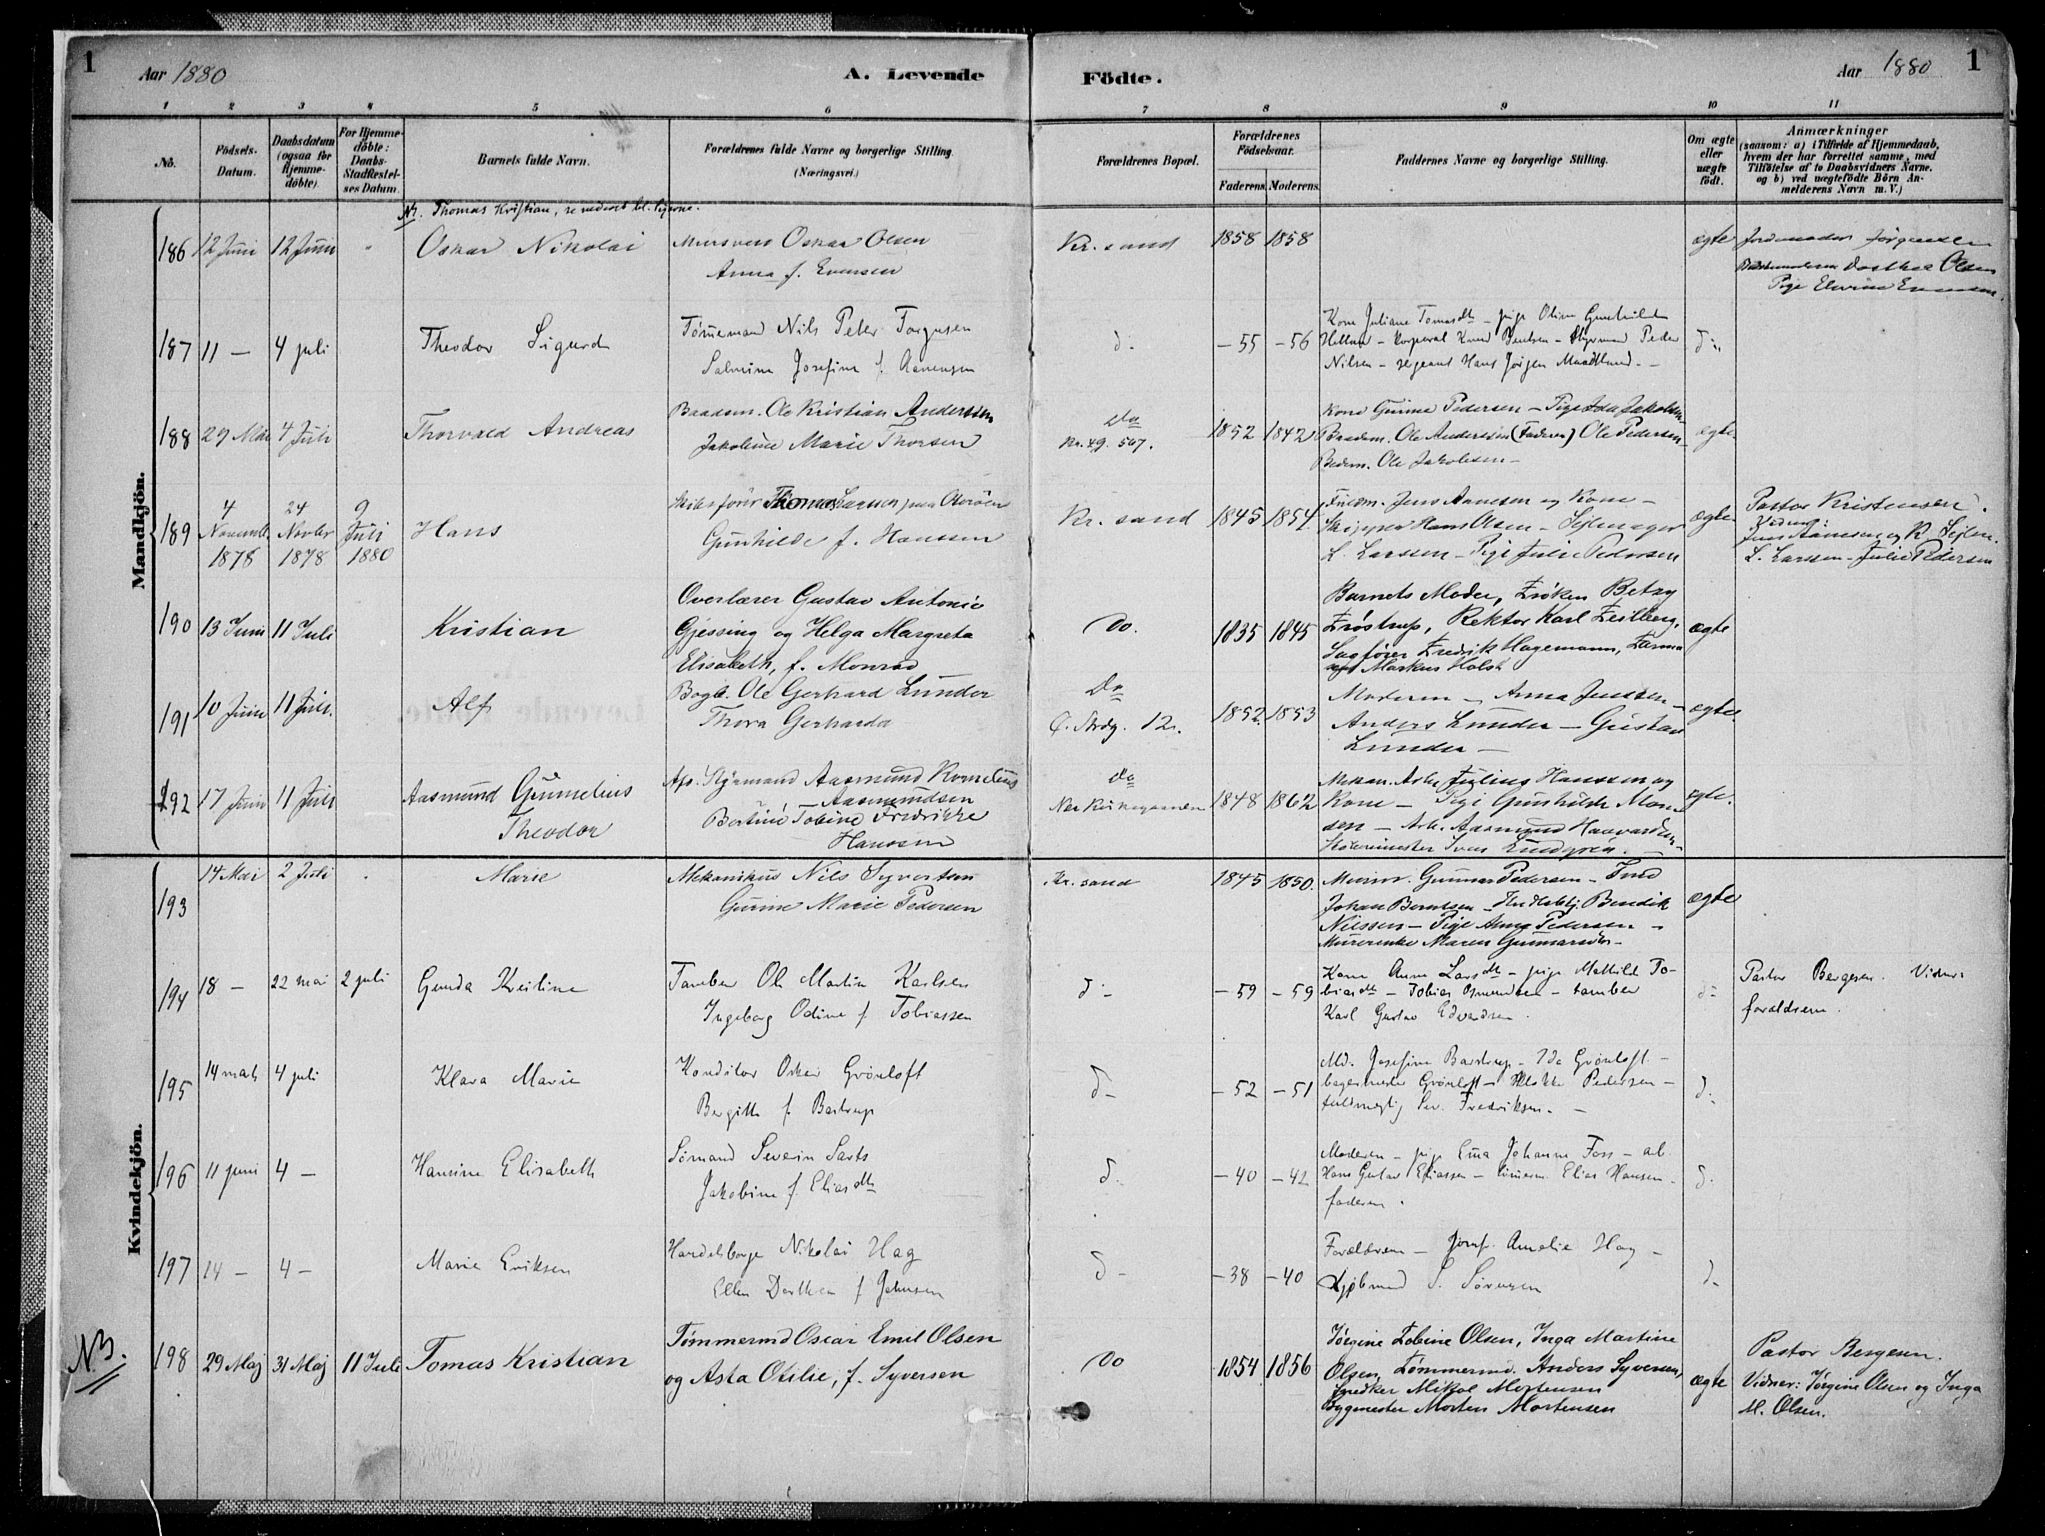 1
Aar 1880
A. Levende
Födte.
Aar 1880
1
1 2 3 4 5 6 7 8 9 10 11
No.
Födsels-Datum.
Daabsdatum (ogsaa for Hjemme-döbte).
For Hjemme-döbte: Daabs-Stadfæstel-ses Datum.
Barnets fulde Navn.
Forældrenes fulde Navne og borgerlige Stilling. (Næringsvei.)
Forældrenes Bopæl.
Forældrenes Födselsaar.
Faderens. Moderens.
Faddernes Navne og borgerlige Stilling.
Om ægte eller uægte födt.
Anmærkninger
(saasom: a) i Tilfælde af Hjemmedaab, hvem der har forrettet samme, med Tilföielse af to Daabsvidners Navne, og b) ved uægtefödte Börn An-melderens Navn m. V.)
Mandkjön.
Thomas Kristian, se nedenst bl. Pigerne.
186 12 Juni 12 Juni Oskar Nikolai
Oskar Olsen
Anna f. Evensen
Kr. sand 1858 1858 ægte
Jordemoder Jørgensen
Dorthea Olsen
Pige
187 11 — 4 juli Theodor Sigurd
Tømmemand Nils Peter Torgusen
Josefine f.
d. — 55 — 56
Kone Juliane Tomasdt — pige Oline Gunhild
Korporal Knud Bentsen — Styrmand Peder
Nilsen — sergeant Hans Jørgen
d:
188 29 Mai 4 Juli Thorvald Andreas
Baadsm. Ole Kristian Anderssen
Jakobine Marie Thorsen
Do
Kr. 49. 507.
1852 1842
Kone Gurine Pedersen — Pige Ida Jakobsen
Baadsm. Ole Anderssen (Faderen) Ole Pedersen
Ole Jakobsen —
ægte
189 4 November 1878 24 Novbr 1878 9 Juli 1880 Hans
Skibsfører Thomas Larssen paa Oterøen
Gunhilde f. Hanssen
Kr. sand 1845 1854
Jens Aanesen og Kone —
Skipper Hans Olsen — Sejlmager
L. Larssen — Pige Julie Pedersen
ægte
Pastor Kristensen.
Vidner:
Jens Aanesen og K. Sejlm.
L. Larssen — Julie Pedersen
190 13 Juni 11 Juli Kristian
Overlærer Gustav Antonio
Gjessing og Helga Margreta
Elisabeth, f. Monrad
Do. 1835 1845
Barnets Moder, Frøken Betzy
Frøstrup, Rektor Karl
Sagfører Fredrik Hagemann,
Markus Holst
ægte
191 10 Juni 11 Juli. Alf
Bogb. Ole Gerhard Lunder
Thora Gerharda
Do
12.
1852. 1853
Moderen — Anna Jenssen —
Anders Lunder — Gustav
Lunder —
ægte
192 17 Juni 11 Juli Aasmund Gummelius
Theodor
Styrmand Aasmund Kornelius
Aasmundsen
Bertine Tobine Fredrikke
Hanssen
do
Ner Kirkegaarden
1848 1862
Hanssen og
Kone — Pige Gunhilde
— Arb. Aasmund
Iver Lundgren. —
ægte.
Kvindekjön.
193 14 Mai 2 Juli Marie
Mekanikus Nils Syvertsen
Gurine Marie Pedersen
Kr. sand 1845 1850.
Gunnar Pedersen —
Johan Berntsen — Bendik
Nielssen — Pige Anna Pedersen —
Murerenke Maren Gunnarsdtr —
ægte
194 18 — 22 mai 2 juli Gunda Kristine
Tømber Ole Martin Karlsen
Ingeborg Odine f Tobiassen
d — — 59 — 59
Kone Anne Larsdt — pige Mathilde To-
biasdt — Tobias Osmundsen — tømber
Karl Gustav Edvardsen.
d:
Pastor Bergesen. Vidner:
forældrene.
195 14 mai 4 juli Klara Marie
Konditor Oskar Grønloft
Bergitte f. Bastrup
d — — 52 — 51
Md. Josefine Bastrup — Ida Grønloft —
bagermester Grønloft — Pedersen —
fuldmegtig Sev. Fredriksen. —
d.
196 11 juni 4 — Hansine Elisabeth
Sømand Severin
Jakobine f. Eliasdtr
d. — 40 — 42
Moderen — pige Ema Johanne Foss — ab.
Hans Gustav Eliassen — tømerm. Elias Hansen.
faderen.
d.
197 14 — 4 — Marie Eriksen
Handelsborger Nikolai Hag
Ellen Dorthea f Johnsen
d — — 38 — 40
Forældrene — Jomf. Amalie Hag —
Kjøbmand S. Sørensen
d.
N.B. 198 29 Maj 31 Maj 11 Juli Tomas Kristian
Tømmermd Oscar Emil Olsen
og Asta Otilie, f. Syversen
Do 1854 1856
Jørgine Tobine Olsen, Inga Martine
Olsen, Tømmermd. Anders Syversen,
Snedker Mikal Mortensen
Bygmester Morten Mortensen
ægte
Pastor Bergesen.
Vidner: Jørgine Olsen og Inga
M. Olsen.